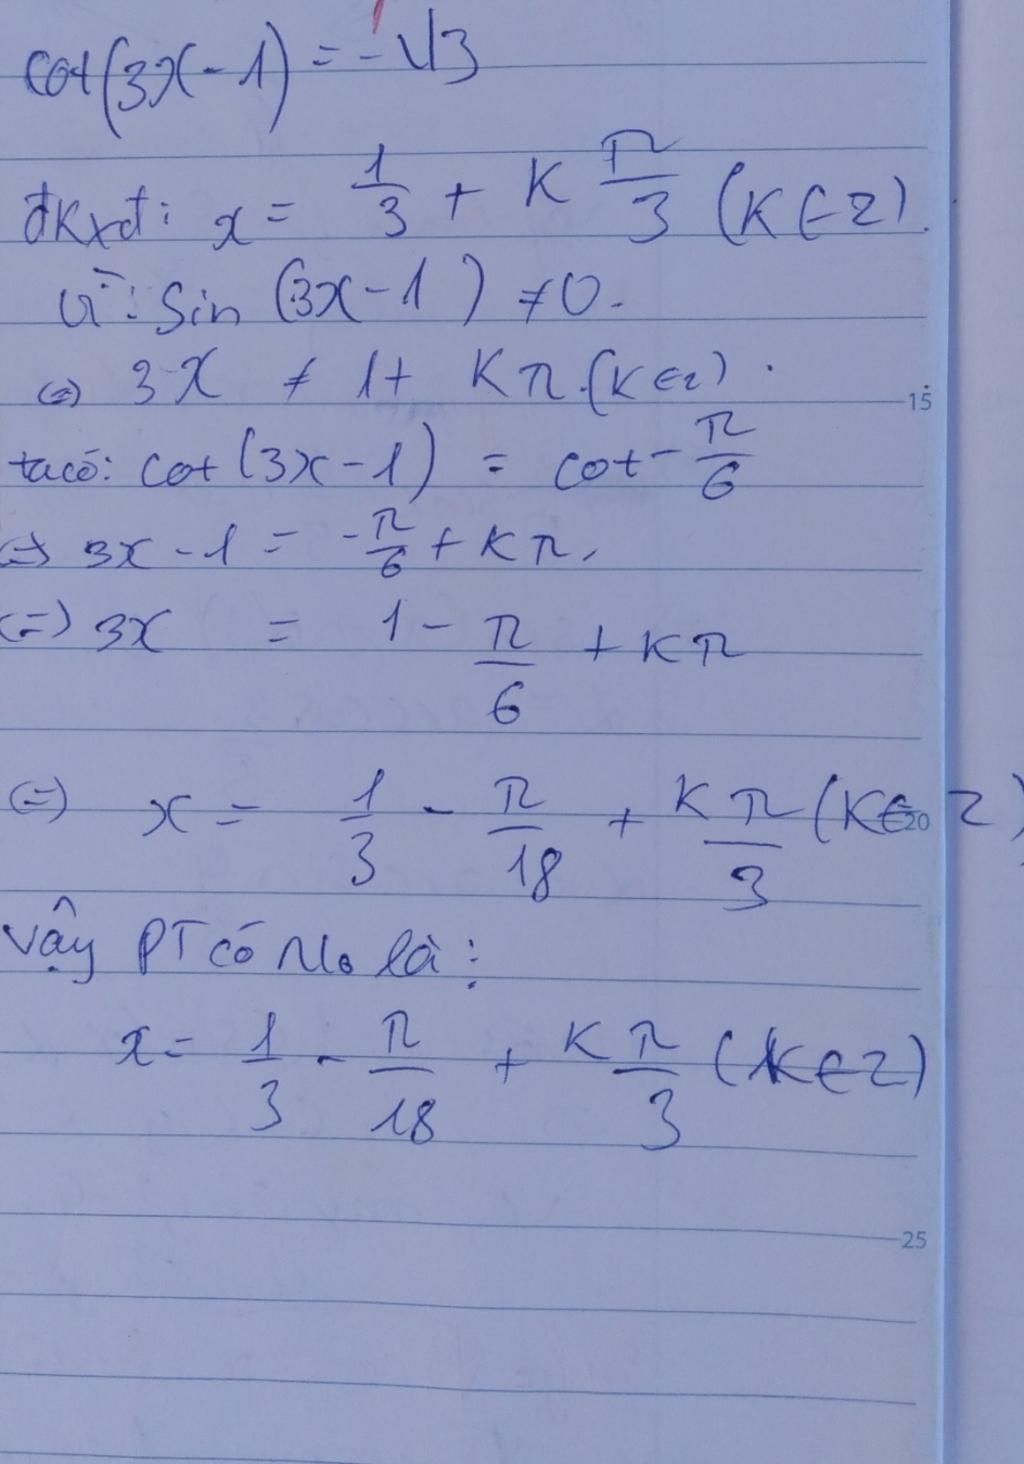 cot(3x-1) = -√3
đKxđ: x = 1/3 + K π/3 (K∈Z).
Vì: Sin (3x-1) ≠0.
<=> 3x ≠ 1+ Kπ.(K∈Z).
15
ta có: cot(3x-1) = cot - π/6
<=> 3x-1 = -π/6 + Kπ,
<=> 3x = 1 - π/6 + Kπ
<=> x = 1/3 - π/18 + Kπ/3 (K∈Z)
20
Vậy PT có No là:
x = 1/3 - π/18 + Kπ/3 (K∈Z)
25